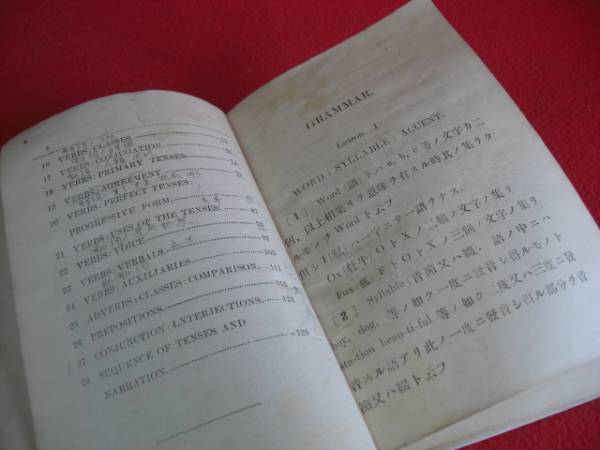 16 VERBS: CLASSES
17 VERBS: CONJUGATION
18 VERBS: PRIMARY TENSES.
VERBS: AGREEMENT
VERBS: PERFECT TENSES:
PROGRESSIVE FORM.
21 VERBS: USES OF THE TENSES.
22 VERBS: VOICE
23 VERBS: VERBALS.
24 VERBS: AUXILIARIES.
25 ADVERBS; CLASSES: COMPARISON.
26 PREPOSITIONS.
27 CONJUNCTION: LNTERJECTIONS.
28 SEQUENCE OF TENSES AND
NARRATION. 126
GRAMMAR.
Lesson 1
WORD; SYLLABLE; ACCENT.
[1] Word (語) トハ a, b, c 等ノ文字カ二
個、以上相集リテ意味ヲ有スル時其ノ集リタ
ルモノヲ Word ト云フ
但シ I (私) ハ一字ニテ一語ヲナス.
Ox (牡牛) O ト X ノ二個ノ文字ノ集リ
Fox (狐) F ト O ト X ノ三個ノ文字ノ集リ
[2] Syllable (音節又ハ綴. 語ノ中ニハ
boy, dog, 等ノ如ク一度ニ發音シ得ルモノト
sta-tion beau-ti-ful 等ノ如ク二度又ハ三度ニ發
音スル語アリ此ノ一度ニ發音シ得ル部分ヲ音
節又ハ綴ト云フ